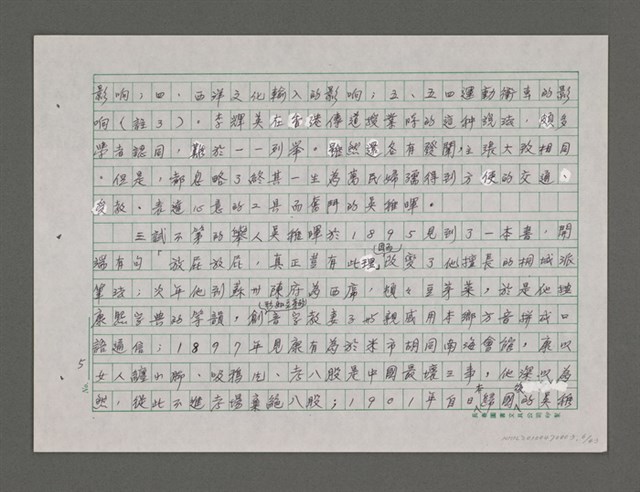 影响；四、西洋文化輸入的影响；五、五四運動衝击的影
响（註3）。李輝英在香港傳道授業時的這种說法，頗多
學者認同，難於一一列舉。雖然還各有發闡，主張大致相同
。但是，都忽略了終其一生為萬民婦孺得到方便的交通、
受教、表達心意的工具而奮鬥的吳稚暉。
三試不第的舉人吳稚暉於1895見到了一本書，開
端有句「放屁放屁，真正豈有此理 改變了他擅長的桐城派
筆法；次年他到蘇州陳府為西席，
康熙字典的等韻，創 音字教妻子好親戚用本鄉方音拼成口
語通信；1897年見康有為於米市胡同南海會館，康以
女人纏小腳、吸鴉片、考八股是中國最壞三事，他深以為
然，從此不進考場棄絕八股；1901年自日本歸國 的吳稚
No. 5